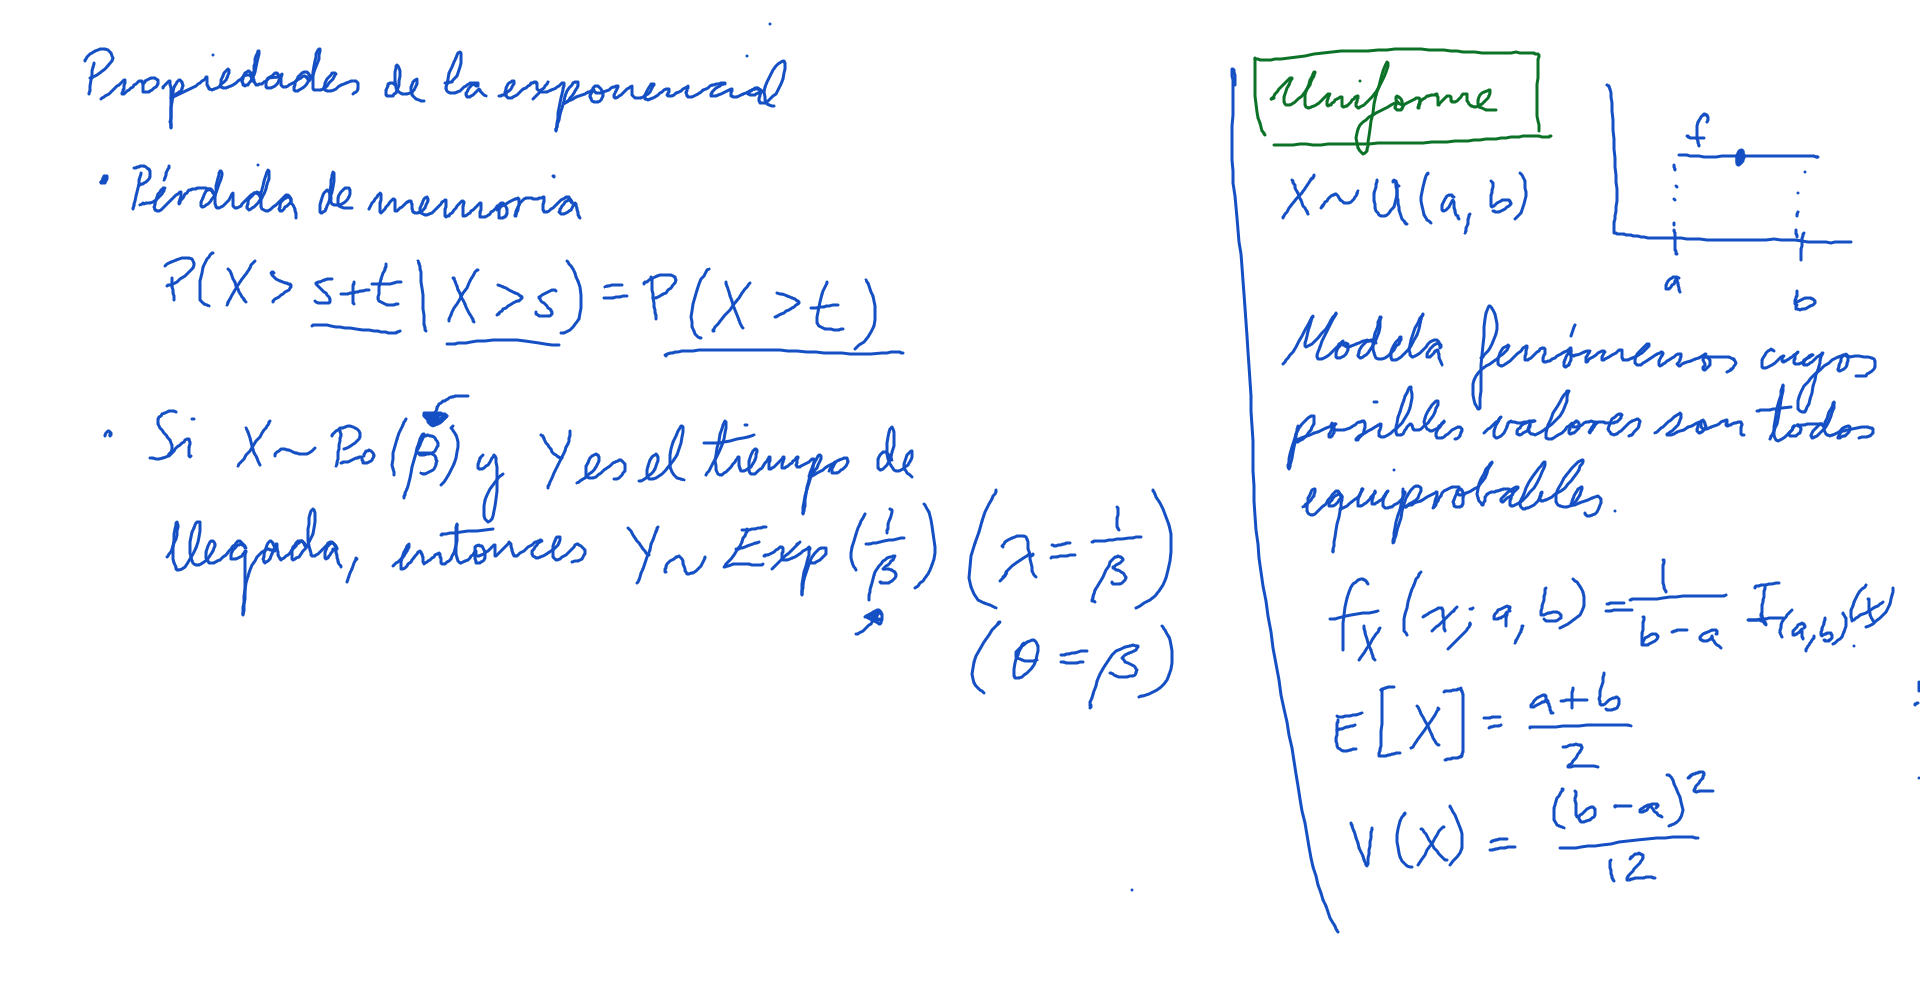 Propiedades de la exponencial
• Pérdida de memoria
P(X > s+t | X > s) = P(X > t)
• Si X ~ Po(β) y Y es el tiempo de
llegada, entonces Y ~ Exp(1/β) (λ = 1/β)
(θ = β)
Uniforme
f
X ~ U(a, b)
a
b
Modela fenómenos cuyos
posibles valores son todos
equiprobables.
f_X(x; a, b) = 1/(b-a) I_(a,b)(x).
E[X] = (a+b)/2
V(X) = (b-a)²/12